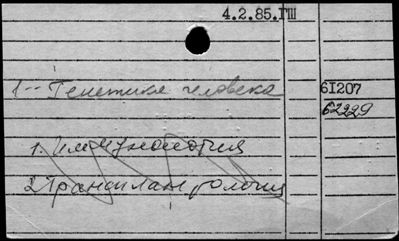 4.2.85.IШ
1-- Генетика человека
61207
62229
1. Иммунология
2. Трансплантология